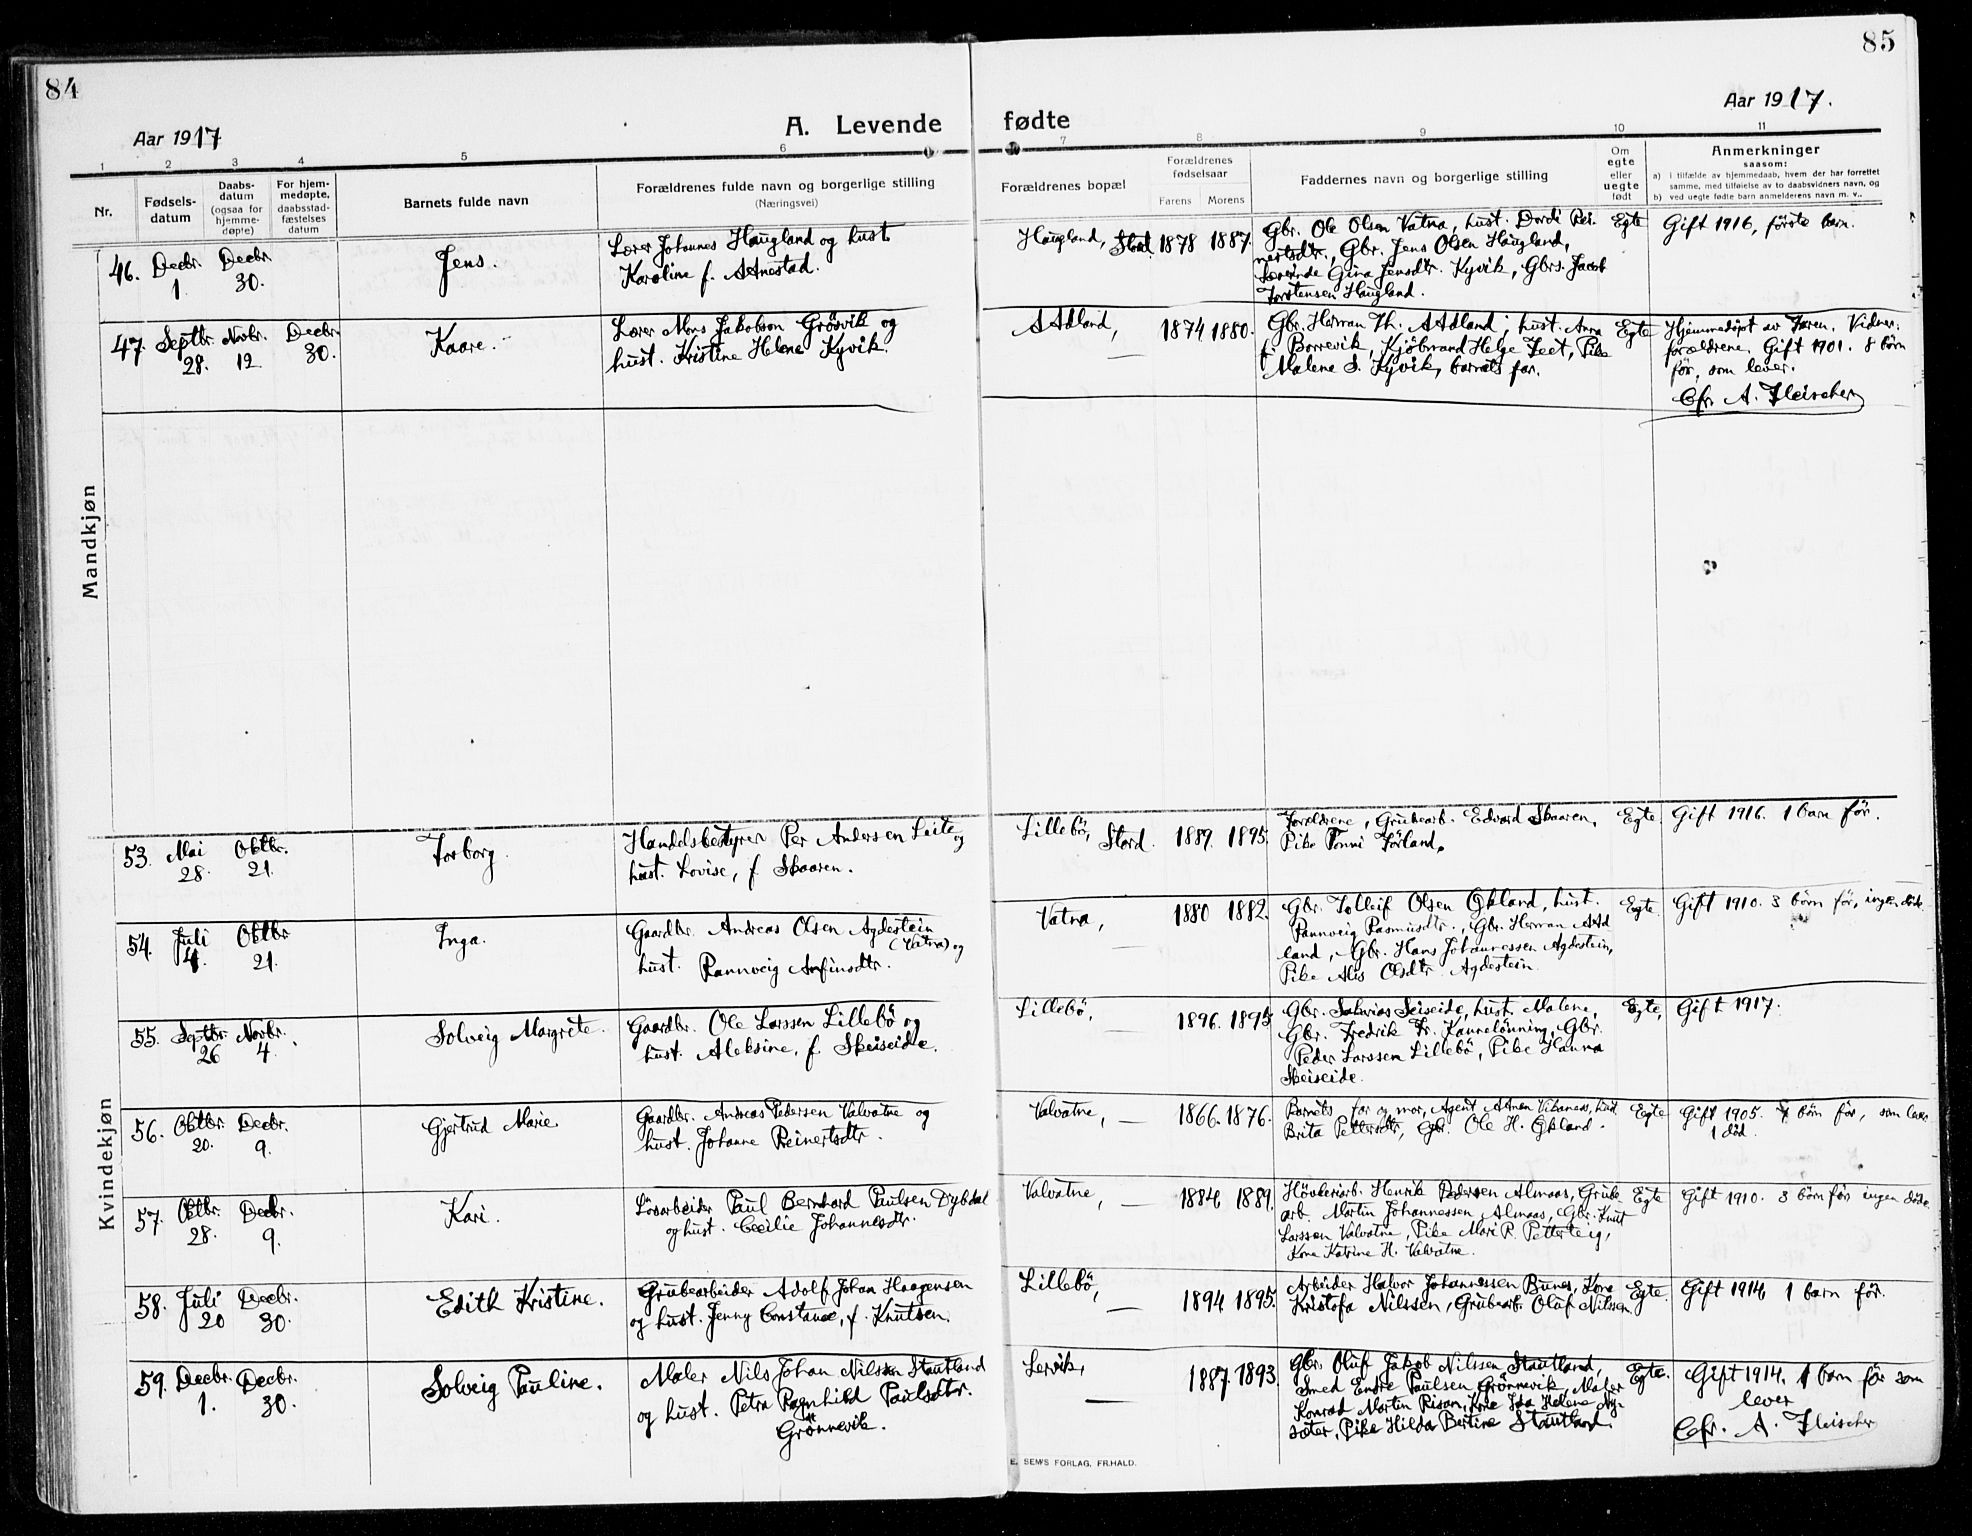 84
85
Aar 1917
A. Levende
fødte
Aar 1917.
1 2 3 4 5 6 7 8 9 10 11
Nr.
Fødsels-
datum
Daabs-
datum
(ogsaa for
hjemme-
døpte)
For hjem-
medøpte,
daabsstad-
fæstelses
datum
Barnets fulde navn
Forældrenes fulde navn og borgerlige stilling
(Næringsvei)
Forældrenes bopæl
Forældrenes
fødselsaar
Farens Morens
Faddernes navn og borgerlige stilling
Om
egte
eller
uegte
født
Anmerkninger
saasom:
a) i tilfælde av hjemmedaab, hvem der har forrettet
samme, med tilføielse av to daabsvidners navn, og
b) ved uegte fødte barn anmelderens navn m. v..
Mandkjøn
46. Decbr. 1. Decbr. 30.
Jens.
Lærer Johannes Haugland og hust.
Karoline f. AAnestad.
Haugland, Stord. 1878 1887.
Gbr. Ole Olsen Vatna, hust. Dordi Rei-
nertsdtr., Gbr. Jens Olsen Haugland,
Lærerinde Gina Jensdtr. Kyvik, Gbrs. Jacob
Torstensen Haugland.
Egte
Gift 1916, förste barn.
47. Septbr. 28. Novbr. 12. Decbr. 30.
Kaare.
Lærer Mons Jakobson Grösvik og
hust. Kristine Helene Kyvik.
AAdland, — 1874 1880.
Gbr. Herman Th. AAdland, hust. Anna
f. Borrevik, Kjöbmand Helge Teet, Pike
Malene S. Kyvik, barnets far.
Egte
Hjemmedöpt av Faren. Vidner:
forældrene. Gift 1901. 8 börn
för, som lever.
Cfr. A. Fleischer
Kvindekjøn
53. Mai 28. Oktbr. 21.
Torborg.
Handelsbestyrer Per Andersen Leite og
hust. Lovise, f. Skaaren.
Lillebö, Stord. 1889. 1895.
Forældrene, Grubearb. Edvard Skaaren,
Pike Tonni Förland.
Egte.
Gift 1916. 1 barn för.
54. Juli 4. Oktbr 21.
Inga.
Gaardbr. Andreas Olsen Agdestein
(Vatna) og
hust. Rannveig Anfinsdtr.
Vatna, — 1880 1882.
Gbr. Tolleif Olsen Ökland, hust.
Rannveig Rasmusdtr., Gbr. Herman AAd
land, Gbr. Hans Johannessen Agdestein,
Pike Alis Olsdtr. Agdestein.
Egte.
Gift 1910. 3 börn för, ingen döde
55. Septbr. 26 Novbr. 4.
Solveig Margrete.
Gaardbr. Ole Larssen Lillebö og
hust. Aleksine, f. Skeiseide.
Lillebö, — 1896. 1895
Gbr. Sakarias Seiseide, hust. Malene,
Gbr. Fredrik Fr. Kannelönning, Gbr.
Peder Larssen Lillebö, Pike Hanna
Skeiseide.
Egte,
Gift 1917.
56. Oktbr. 20. Decbr. 9.
Gjertrud Marie.
Gaardbr. Andreas Pedersen Valvatne og
hust. Johanne Reinertsdtr.
Valvatne, — 1866. 1876.
Barnets far og mor, Agent Vikanes, hust
Brita Pettersdtr, Gbr. Ole H. Ökland.
Egte
Gift 1905. börn för, som lever
1 död.
57. Oktbr. 28. Decbr. 9.
Kari.
Lösarbeider Paul Bernhard Paulsen Dybdal
og hust. Cecilie Johannesdtr.
Valvatne, — 1884 1889.
Hövleriarb. Henrik Pedersen Almaas, Grube
arb. Martin Johannessen Almaas, Gbr. Knut
Larsson Valvatne, Pike Mari R. Petterteig,
Kone Katrine H. Valvatne.
Egte
Gift 1910. 3 börn för ingen döde.
58. Juli 20 Decbr. 30.
Edith Kristine.
Grubearbeider Adolf Johan Haagensen
og hust. Jenny Constance, f. Knutsen.
Lillebö, — 1894 1895.
Arbeider Halvor Johannessen Bunes, Kone
Kristofa Nilssen, Grubearb. Oluf Nilssen.
Egte.
Gift 1914 1 barn för.
59. Decbr. 1. Decbr. 30.
Solveig Pauline.
Maler Nils Johan Nilssen Stautland
og hust. Petra Ragnhild Paulsdtr.
Grönnevik.
Lervik, — 1887 1893.
Gbr. Oluf Jakob Nilssen Stautland,
Smed Endre Paulsen Grönnevik, Maler
Konrad Martin Risan, Kone Ida Helene Ny-
sæter, Pike Hilda Bertine Stautland.
Egte.
Gift 1914. 1 barn för som
lever
Cfr. A. Fleischer
E. SEM'S FORLAG, FR.HALD.